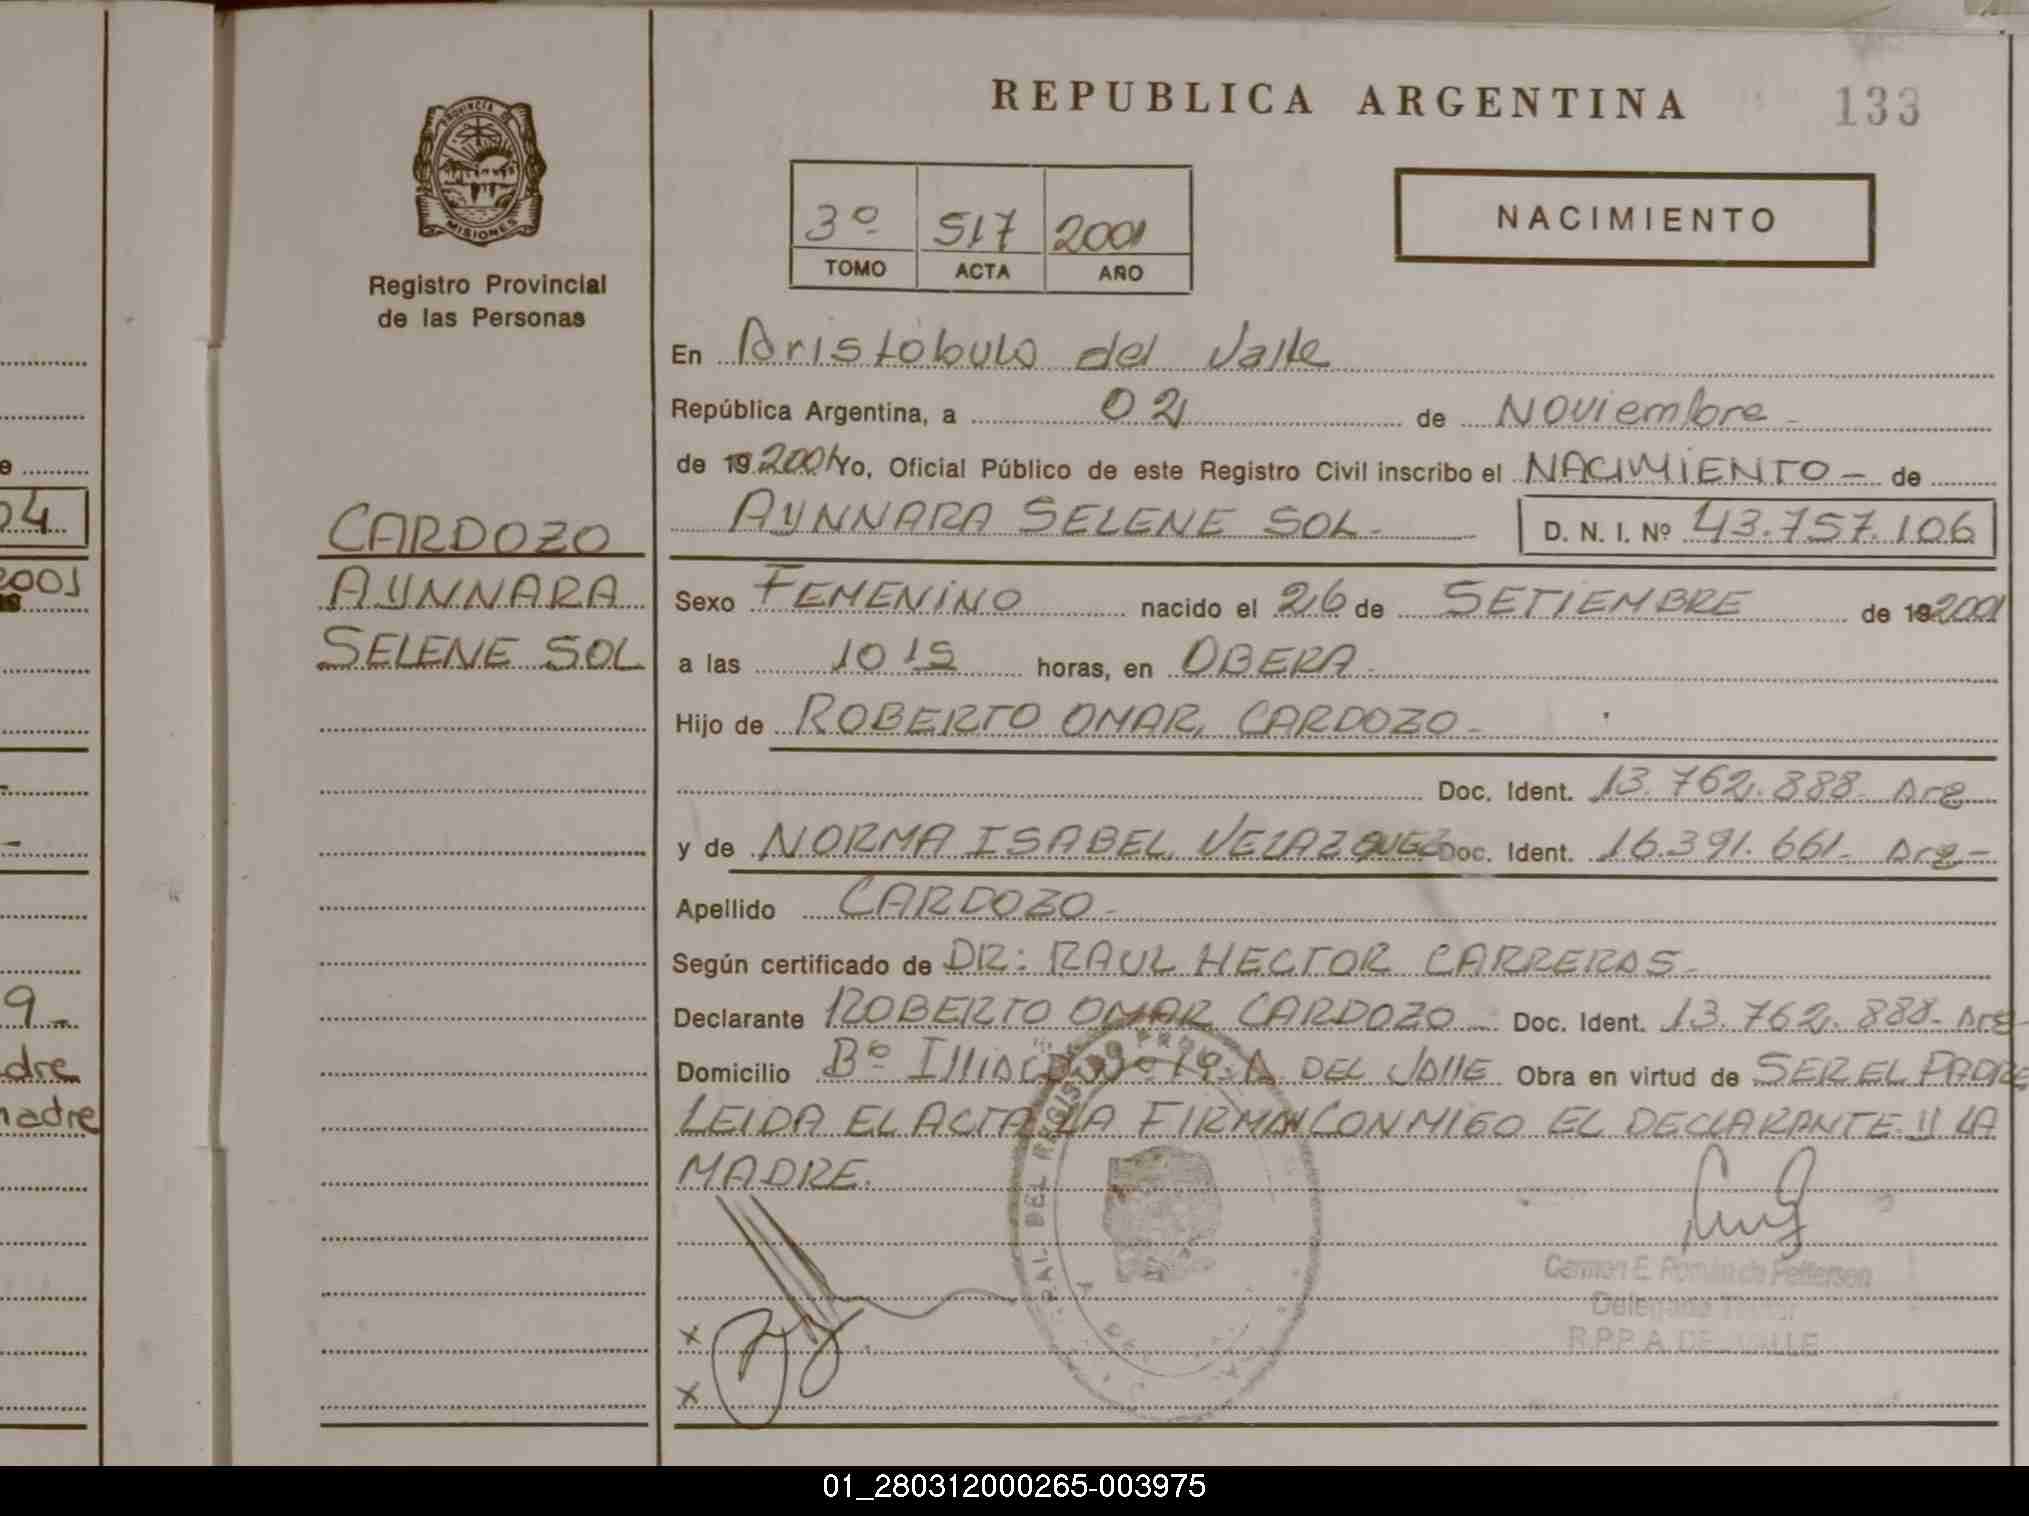 REPUBLICA ARGENTINA
133
PROVINCIA DE
MISIONES
Registro Provincial
de las Personas
3º 517 2001
TOMO ACTA AÑO
NACIMIENTO
En Aristóbulo del Valle
República Argentina, a 02 de Noviembre -
de 19 2001 Yo, Oficial Público de este Registro Civil inscribo el NACIMIENTO - de
AYNNARA SELENE SOL - D. N. I. Nº 43.757.106
CARDOZO
AYNNARA
SELENE SOL
Sexo FEMENINO nacido el 26 de SETIEMBRE de 19 2001
a las 10 15 horas, en OBERA -
Hijo de ROBERTO OMAR, CARDOZO -
Doc. Ident. 13.762.888- Arg
y de NORMA ISABEL, VELAZQUEZ Doc. Ident. 16.391.661- Arg -
Apellido CARDOZO -
Según certificado de DR: RAUL HECTOR CARRERAS -
Declarante ROBERTO OMAR CARDOZO Doc. Ident. 13.762.888- Arg -
Domicilio Bº Illia DEL Valle Obra en virtud de SER EL PADRE
LEIDA EL ACTA LA FIRMAN CONMIGO EL DECLARANTE Y LA
MADRE.
Carmen E. Román de Pefferson
Delegada Titular
R.P.P. A. DEL VALLE
x
x
04
2001
9-
dre
madre
01_280312000265-003975